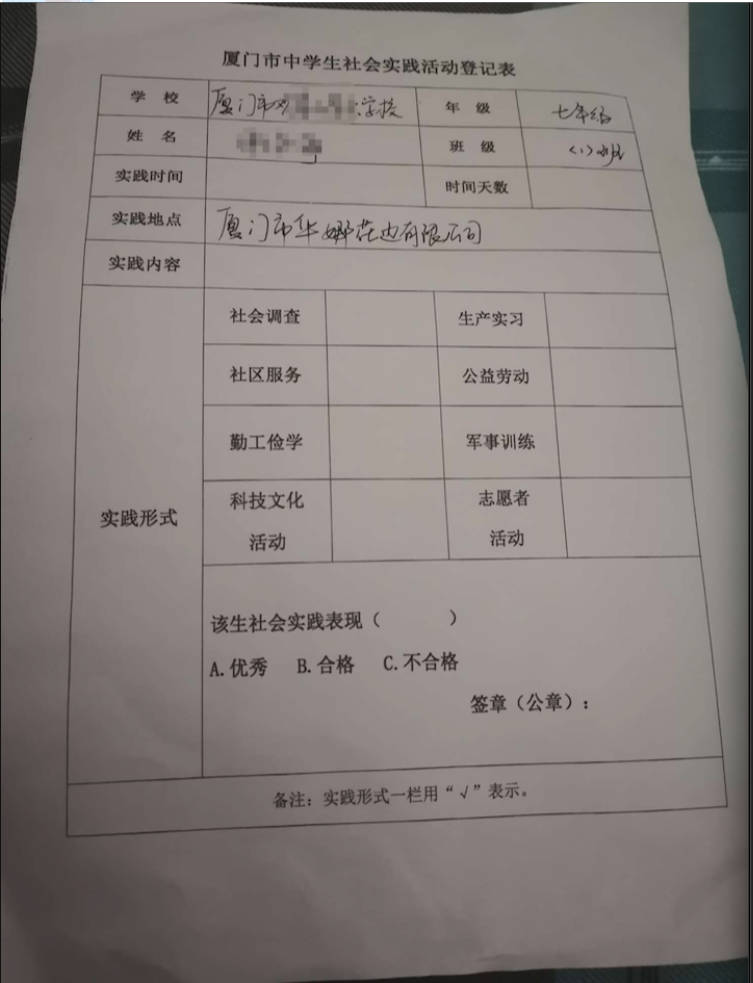 厦门市中学生社会实践活动登记表
学 校 厦门市 学校 年 级 七年级
姓 名 班 级 (1)班
实践时间 时间天数
实践地点 厦门市华娜花边有限公司
实践内容
社会调查 生产实习
社区服务 公益劳动
勤工俭学 军事训练
实践形式
科技文化 志愿者
活动 活动
该生社会实践表现（ ）
A.优秀 B.合格 C.不合格
签章（公章）：
备注：实践形式一栏用“√”表示。